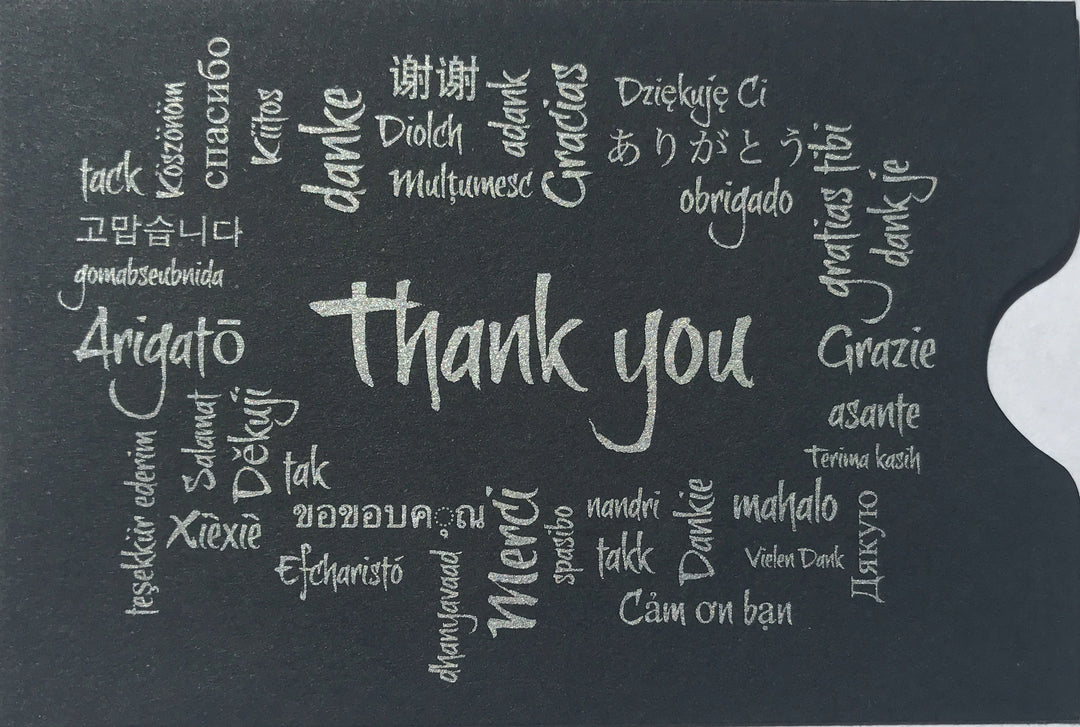 tack
Köszönöm
спасибо
Kiitos
danke
谢谢
Diolch
Mulţumesc
adank
Gracias
Dziękuję Ci
ありがとう
obrigado
gratias tibi
dank je
고맙습니다
gomabseubnida
Arigatō
Thank you
Grazie
asante
Terima kasih
teşekkür ederim
Salamat
Děkuji
Xièxiè
tak
ขอขอบคุณ
Efcharistó
dhanyavaad
Merci
spasibo
nandri
takk
Dankie
mahalo
Vielen Dank
Дякую
Cảm ơn bạn